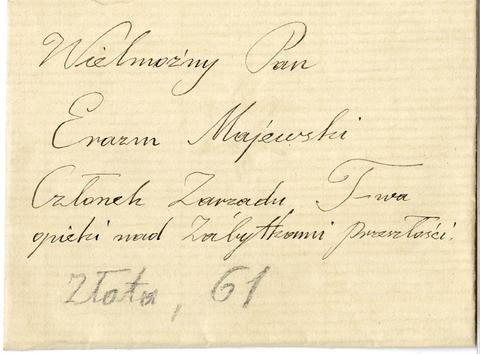 Wielmożny Pan
Erazm Majewski
Członek Zarządu T-wa
opieki nad Zabytkami Przeszłości.
Złota, 61